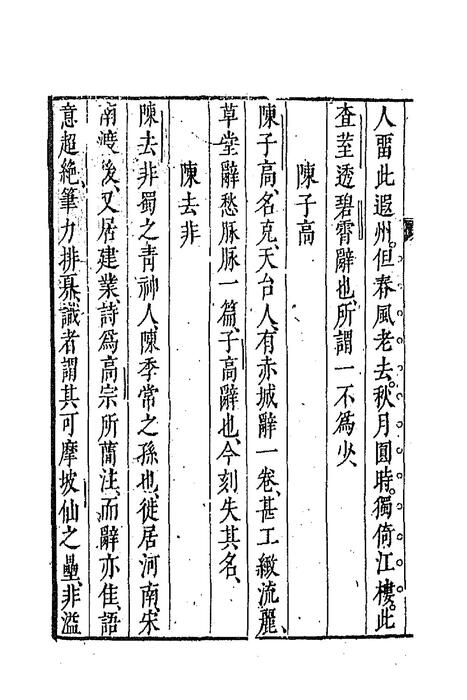 人留此遐州但春風老去秋月圓時獨倚江樓此
査荎透碧霄辭也所謂一不爲少
陳子高
陳子高名克天台人有赤城辭一卷甚工緻流麗
草堂辭愁脉脉一篇子高辭也今刻失其名
陳去非
陳去非蜀之青神人陳季常之孫也徙居河南宋
南渡後又居建業詩爲高宗所簡注而辭亦佳語
意超絶筆力排奡識者謂其可摩坡仙之壘非溢